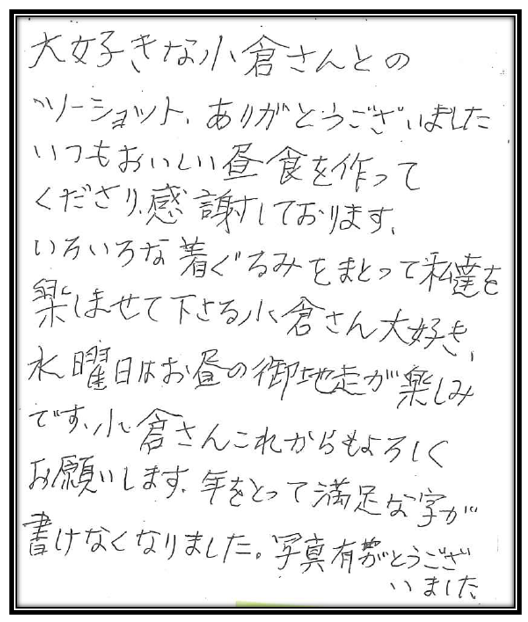 大好きな小倉さんとの
ツーショット、ありがとうございました
いつもおいしい昼食を作って
くださり、感謝しております、
いろいろな着ぐるみをまとって私達を
楽しませて下さる小倉さん大好き、
水曜日はお昼の御地走が楽しみ
です、小倉さんこれからもよろしく
お願いします、年をとって満足な字が
書けなくなりました。写真有難がとうござ
いました